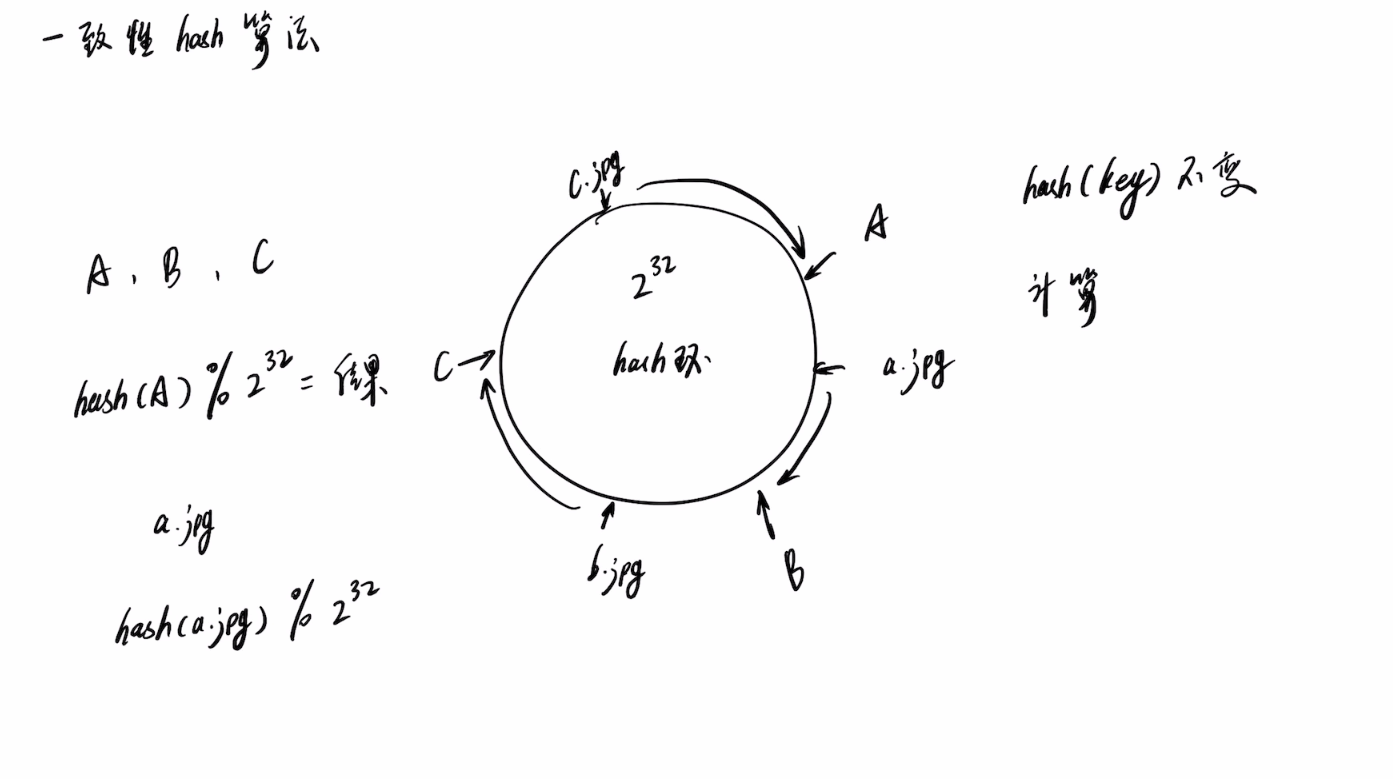 一致性 hash 算法
A、B、C
hash(A) % 2^32 = 结果
a.jpg
hash(a.jpg) % 2^32
c.jpg
A
2^32
hash环
C
a.jpg
b.jpg
B
hash(key) 不变
计算